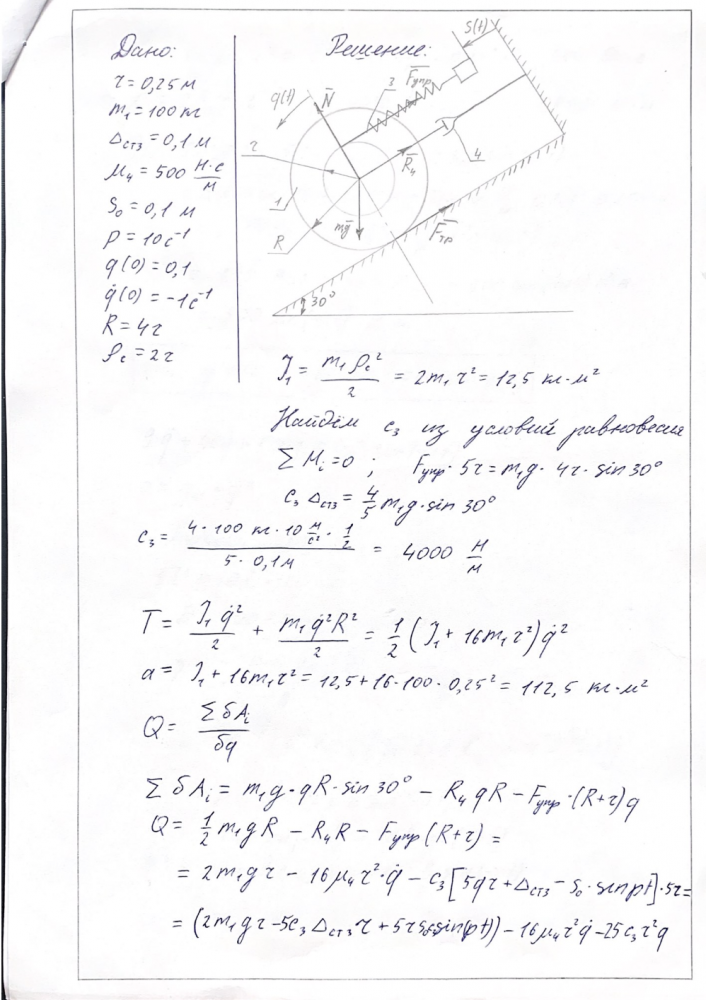 Дано:
r = 0,25 м
m₁ = 100 кг
Δст3 = 0,1 м
μ₄ = 500 Н·с/м
S₀ = 0,1 м
p = 10 с⁻¹
q(0) = 0,1
q̇(0) = -1 с⁻¹
R = 4r
ρc = 2r
Решение:
S(t)
q(t)
N̄
3
F̄упр
r
R̄₄
4
1
R
mḡ
F̄тр
30°
J₁ = m₁ρc²/2 = 2m₁r² = 12,5 кг·м²
Найдём c₃ из условий равновесия
ΣMᵢ = 0 ; Fупр · 5r = m₁g · 4r · sin 30°
c₃ Δст3 = 4/5 m₁g · sin 30°
c₃ = (4 · 100 кг · 10 м/с² · 1/2)/(5 · 0,1 м) = 4000 Н/м
T = J₁q̇²/2 + m₁q̇²R²/2 = 1/2 (J₁ + 16m₁r²) q̇²
a = J₁ + 16m₁r² = 12,5 + 16 · 100 · 0,25² = 112,5 кг·м²
Q = ΣδAᵢ/δq
ΣδAᵢ = m₁g · qR · sin 30° - R₄ qR - Fупр · (R+r) q
Q = 1/2 m₁gR - R₄R - Fупр (R+r) =
= 2m₁gr - 16μ₄r² · q̇ - c₃ [5qr + Δст3 - S₀ · sin pt] · 5r =
= (2m₁gr - 5c₃ Δст3 r + 5r sin(pt)) - 16μ₄r²q̇ - 25c₃r²q